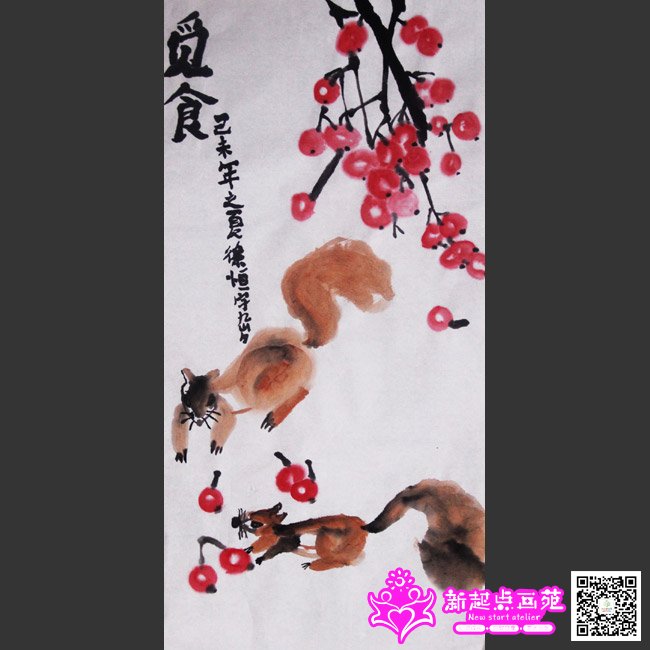 觅食
己未年之夏徐恒宇九岁
新起点画苑
New start atelier